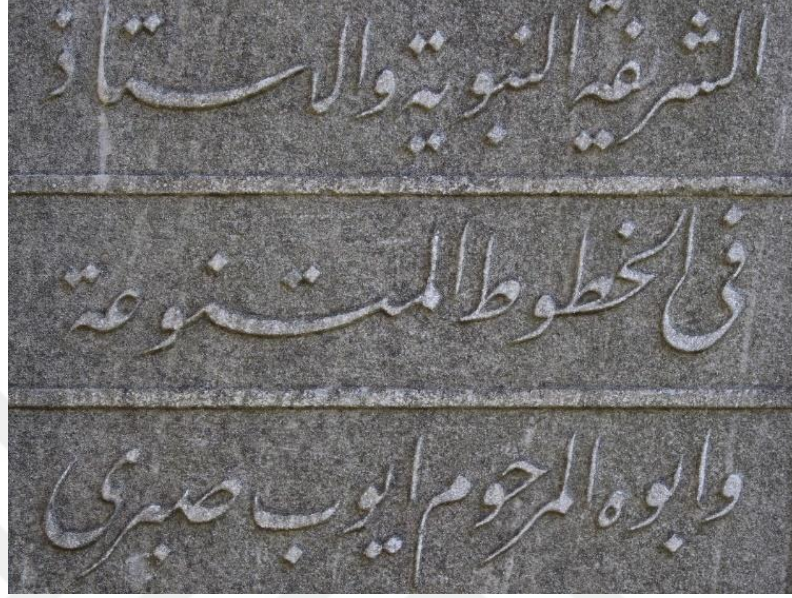 الشريفة النبوية والاستاذ
فى الخطوط المتنوعة
وابوه المرحوم ايوب صبرى